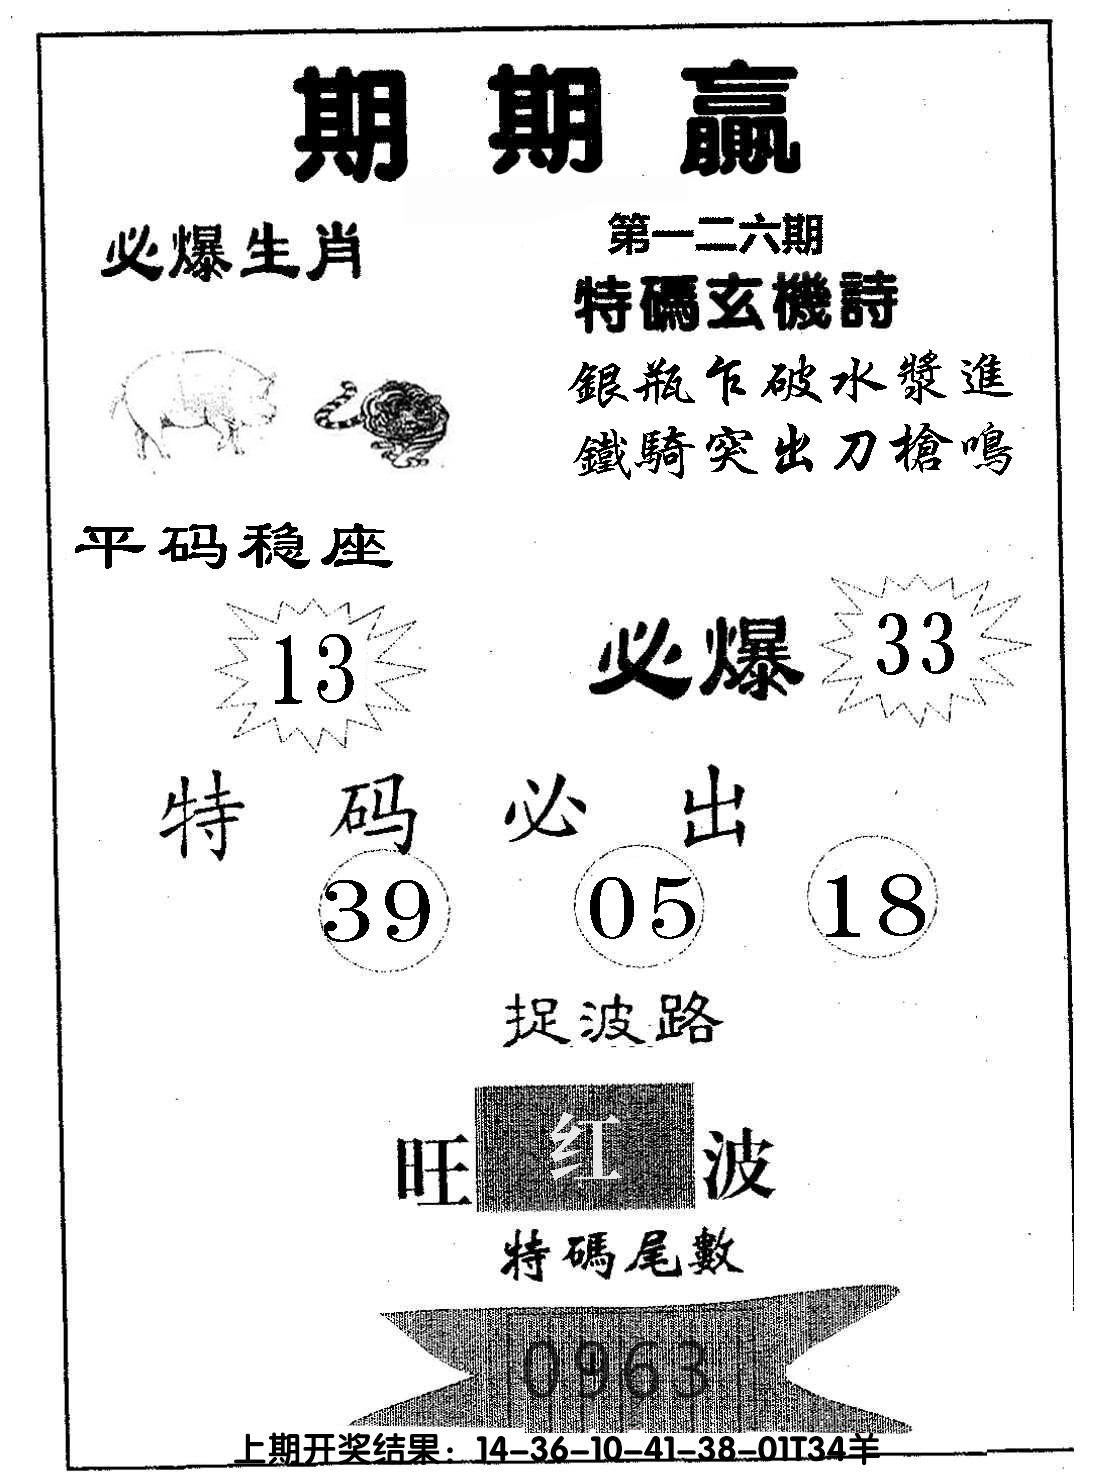 期期贏
必爆生肖
第一二六期
特碼玄機詩
銀瓶乍破水漿進
鐵騎突出刀槍鳴
平码稳座
13
必爆
33
特码必出
39 05 18
捉波路
旺红波
特碼尾數
0963
上期开奖结果：14-36-10-41-38-01T34羊